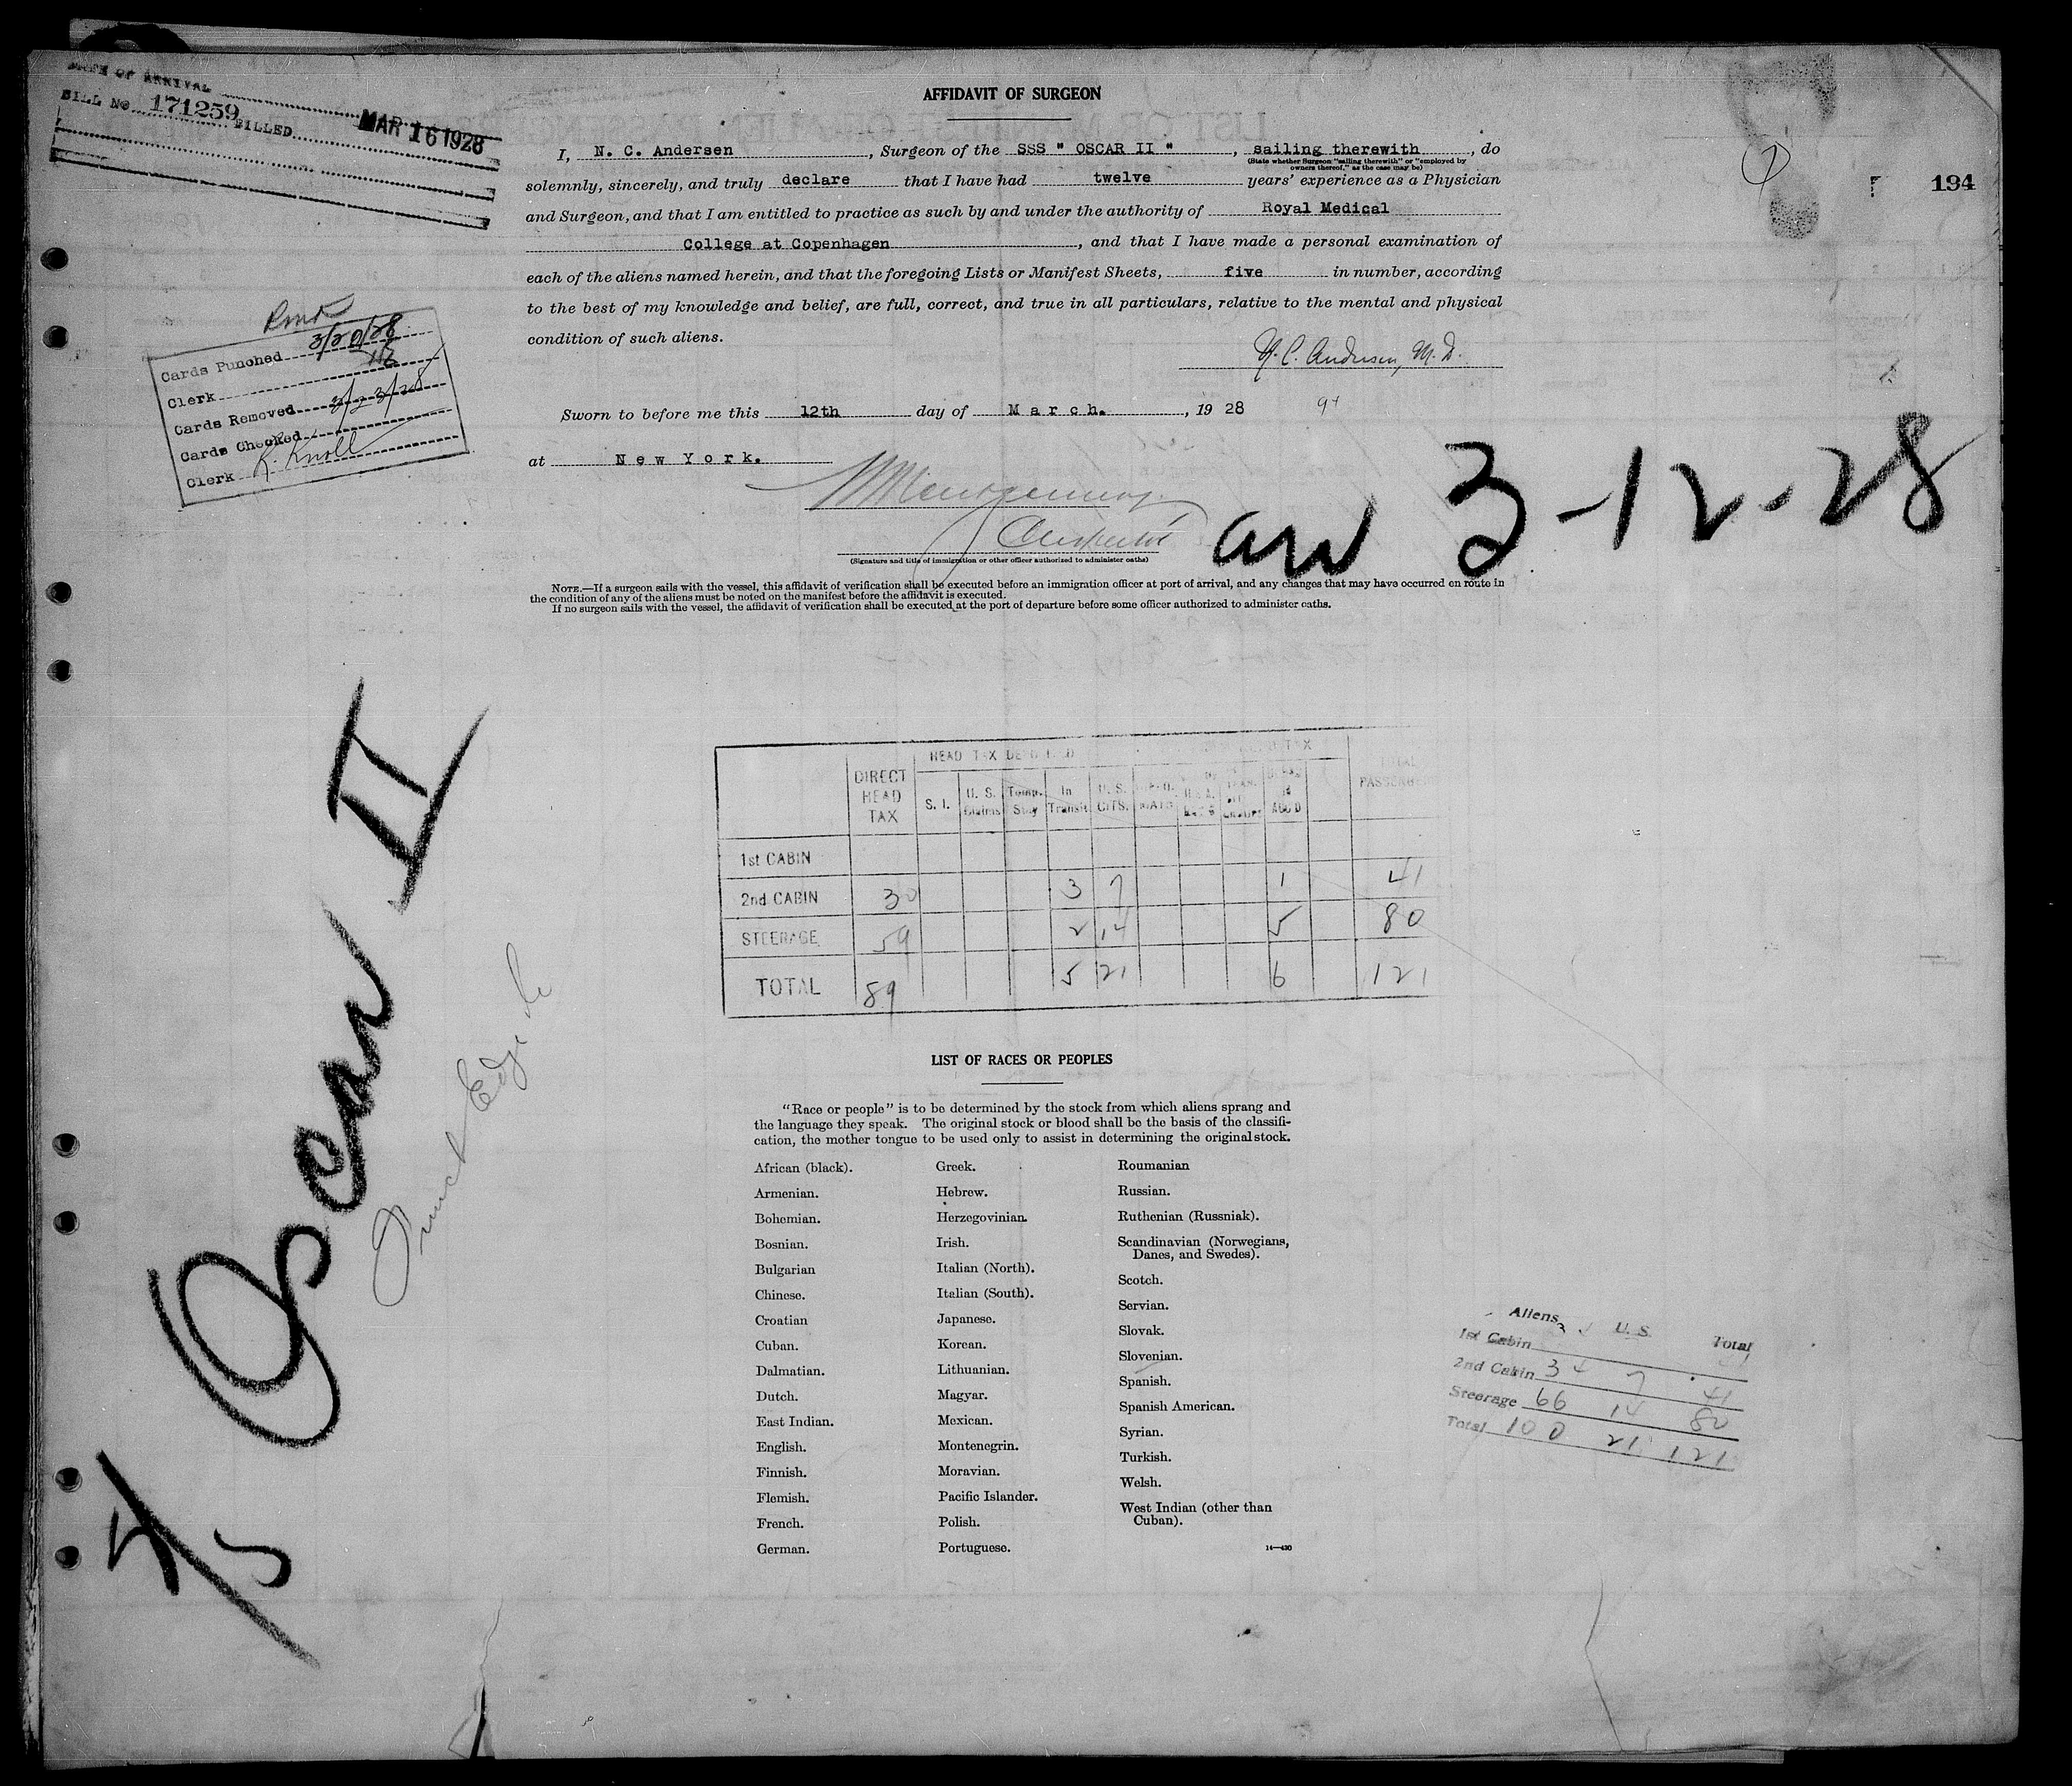 DATE OF ARRIVAL
BILL No 171259 BILLED MAR 16 1928
AFFIDAVIT OF SURGEON
194
I, N. C. Andersen, Surgeon of the SSS " OSCAR II ", sailing therewith, do
(State whether Surgeon "sailing therewith" or "employed by
owners thereof," as the case may be)
solemnly, sincerely, and truly declare that I have had twelve years' experience as a Physician
and Surgeon, and that I am entitled to practice as such by and under the authority of Royal Medical
College at Copenhagen, and that I have made a personal examination of
each of the aliens named herein, and that the foregoing Lists or Manifest Sheets, five in number, according
to the best of my knowledge and belief, are full, correct, and true in all particulars, relative to the mental and physical
condition of such aliens.
N. C. Andersen, M. D.
Sworn to before me this 12th day of March., 19 28
at New York.
Cards Punched 3/20/28
Clerk
Cards Removed 3/23/28
Cards Checked
Clerk K. Knoll
arr 3-12-28
(Signature and title of immigration or other officer authorized to administer oaths)
NOTE.—If a surgeon sails with the vessel, this affidavit of verification shall be executed before an immigration officer at port of arrival, and any changes that may have occurred en route in
the condition of any of the aliens must be noted on the manifest before the affidavit is executed.
If no surgeon sails with the vessel, the affidavit of verification shall be executed at the port of departure before some officer authorized to administer oaths.
Oscar II
DIRECT HEAD TAX S. I. U. S. Claims Temp. Stay In Transit U. S. CITS. TOTAL PASSENGERS
1st CABIN
2nd CABIN 30 3 7 1 41
STEERAGE 59 2 14 5 80
TOTAL 89 5 21 6 121
LIST OF RACES OR PEOPLES
"Race or people" is to be determined by the stock from which aliens sprang and
the language they speak. The original stock or blood shall be the basis of the classifi-
cation, the mother tongue to be used only to assist in determining the original stock.
African (black).
Armenian.
Bohemian.
Bosnian.
Bulgarian
Chinese.
Croatian
Cuban.
Dalmatian.
Dutch.
East Indian.
English.
Finnish.
Flemish.
French.
German.
Greek.
Hebrew.
Herzegovinian.
Irish.
Italian (North).
Italian (South).
Japanese.
Korean.
Lithuanian.
Magyar.
Mexican.
Montenegrin.
Moravian.
Pacific Islander.
Polish.
Portuguese.
Roumanian
Russian.
Ruthenian (Russniak).
Scandinavian (Norwegians,
Danes, and Swedes).
Scotch.
Servian.
Slovak.
Slovenian.
Spanish.
Spanish American.
Syrian.
Turkish.
Welsh.
West Indian (other than
Cuban).
14—430
Aliens U. S. Total
1st Cabin
2nd Cabin 34 7 41
Steerage 66 14 80
Total 100 21 121